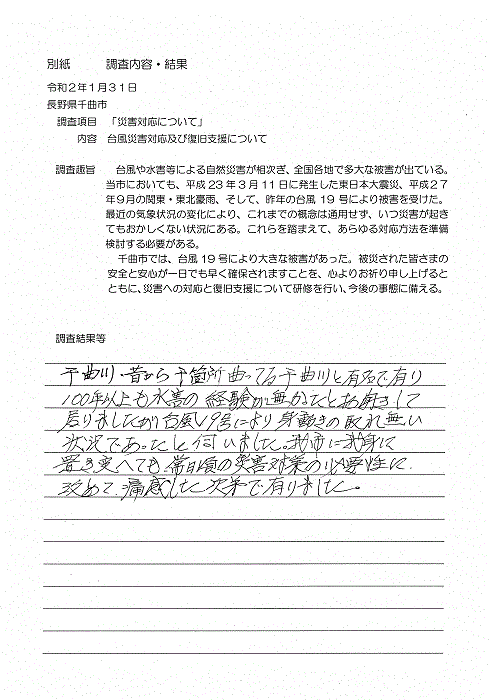 別紙　　調査内容・結果
令和２年１月３１日
長野県千曲市
調査項目　「災害対応について」
内容　台風災害対応及び復旧支援について
調査趣旨　台風や水害等による自然災害が相次ぎ、全国各地で多大な被害が出ている。
当市においても、平成23年3月11日に発生した東日本大震災、平成27
年9月の関東・東北豪雨、そして、昨年の台風19号により被害を受けた。
最近の気象状況の変化により、これまでの概念は通用せず、いつ災害が起き
てもおかしくない状況にある。これらを踏まえて、あらゆる対応方法を準備
検討する必要がある。
千曲市では、台風19号により大きな被害があった。被災された皆さまの
安全と安心が一日でも早く確保されますことを、心よりお祈り申し上げると
ともに、災害への対応と復旧支援について研修を行い、今後の事態に備える。
調査結果等
千曲川・昔から千箇所曲ってる千曲川と有名で有り
100年以上も水害の経験が無かったとお聞きして
居りましたが台風19号により身動きの取れ無い
状況であったと伺いました。我市に我身に
置き変へても常日頃の災害対策の必要性に
改めて痛感した次第で有りました。